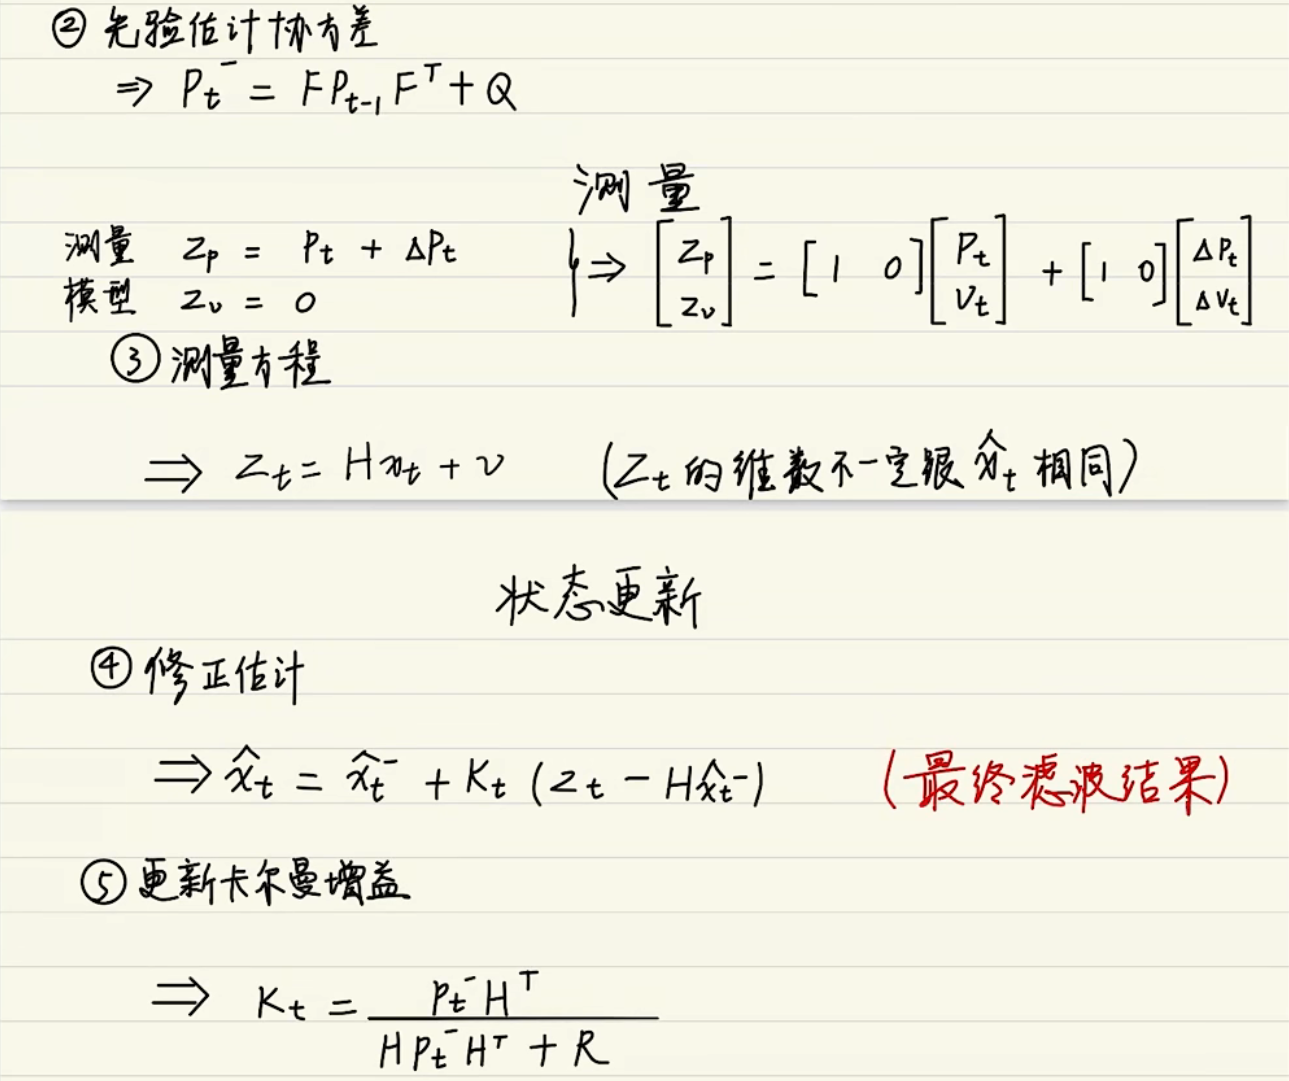 ② 先验估计协方差
⇒ Pₜ⁻ = FPₜ₋₁Fᵀ + Q
测量
测量 Zₚ = Pₜ + ΔPₜ
模型 Zᵥ = 0
} ⇒ [Zₚ; Zᵥ] = [1 0][Pₜ; Vₜ] + [1 0][ΔPₜ; ΔVₜ]
③ 测量方程
⇒ Zₜ = Hxₜ + v (Zₜ的维数不一定跟x̂ₜ相同)
状态更新
④ 修正估计
⇒ x̂ₜ = x̂ₜ⁻ + Kₜ(zₜ − Hx̂ₜ⁻) (最终滤波结果)
⑤ 更新卡尔曼增益
⇒ Kₜ = Pₜ⁻Hᵀ / (HPₜ⁻Hᵀ + R)